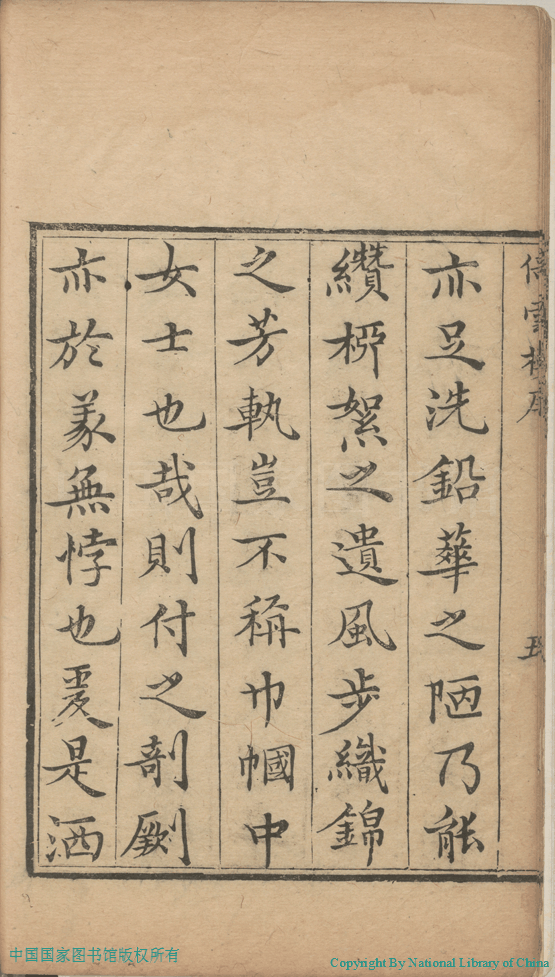 亦足洗鉛華之陋乃能
纘柳絮之遺風步織錦
之芳軌豈不稱巾幗中
女士也哉則付之剞劂
亦於義無悖也爰是洒
中国国家图书馆版权所有
Copyright By National Library of China